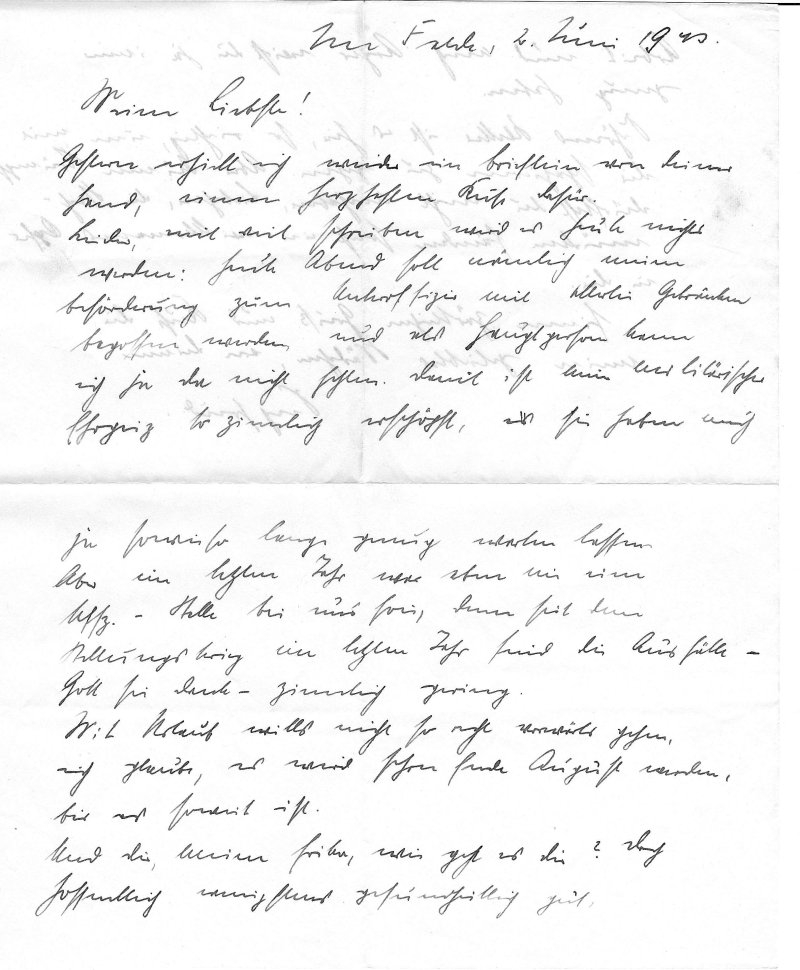 Im Felde, 2. Juni 1943.
Meine Liebste!
Gestern erhielt ich wieder ein Brieflein von deiner
Hand, einen herzhaften Kuß dafür.
Leider, mit viel schreiben wird es heute nichts
werden: heute Abend soll nämlich meine
Beförderung zum Unteroffizier mit allerlei Getränken
begossen werden und als Hauptperson kann
ich ja da nicht fehlen. Damit ist mein militärischer
Ehrgeiz so ziemlich erschöpft, sie haben mich
ja sowieso lange genug warten lassen.
Aber im letzten Jahr war eben nie eine
Uffz. - Stelle bei uns frei, denn seit dem
Stellungskrieg im letzten Jahr sind die Ausfälle -
Gott sei Dank - ziemlich gering.
Mit Urlaub wills nicht so recht vorwärts gehen,
ich glaube, es wird schon Ende August werden,
bis es soweit ist.
Und dir, meine, wie geht es dir? Doch
hoffentlich wenigstens gesundheitlich gut.